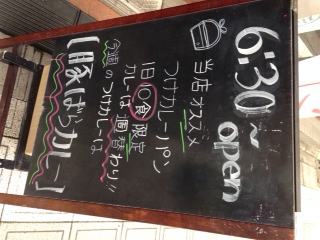 6:30～
open
当店オススメ
つけカレーパン
1日10食限定
カレーは週替わり!!
今週のつけカレーは
豚ばらカレー